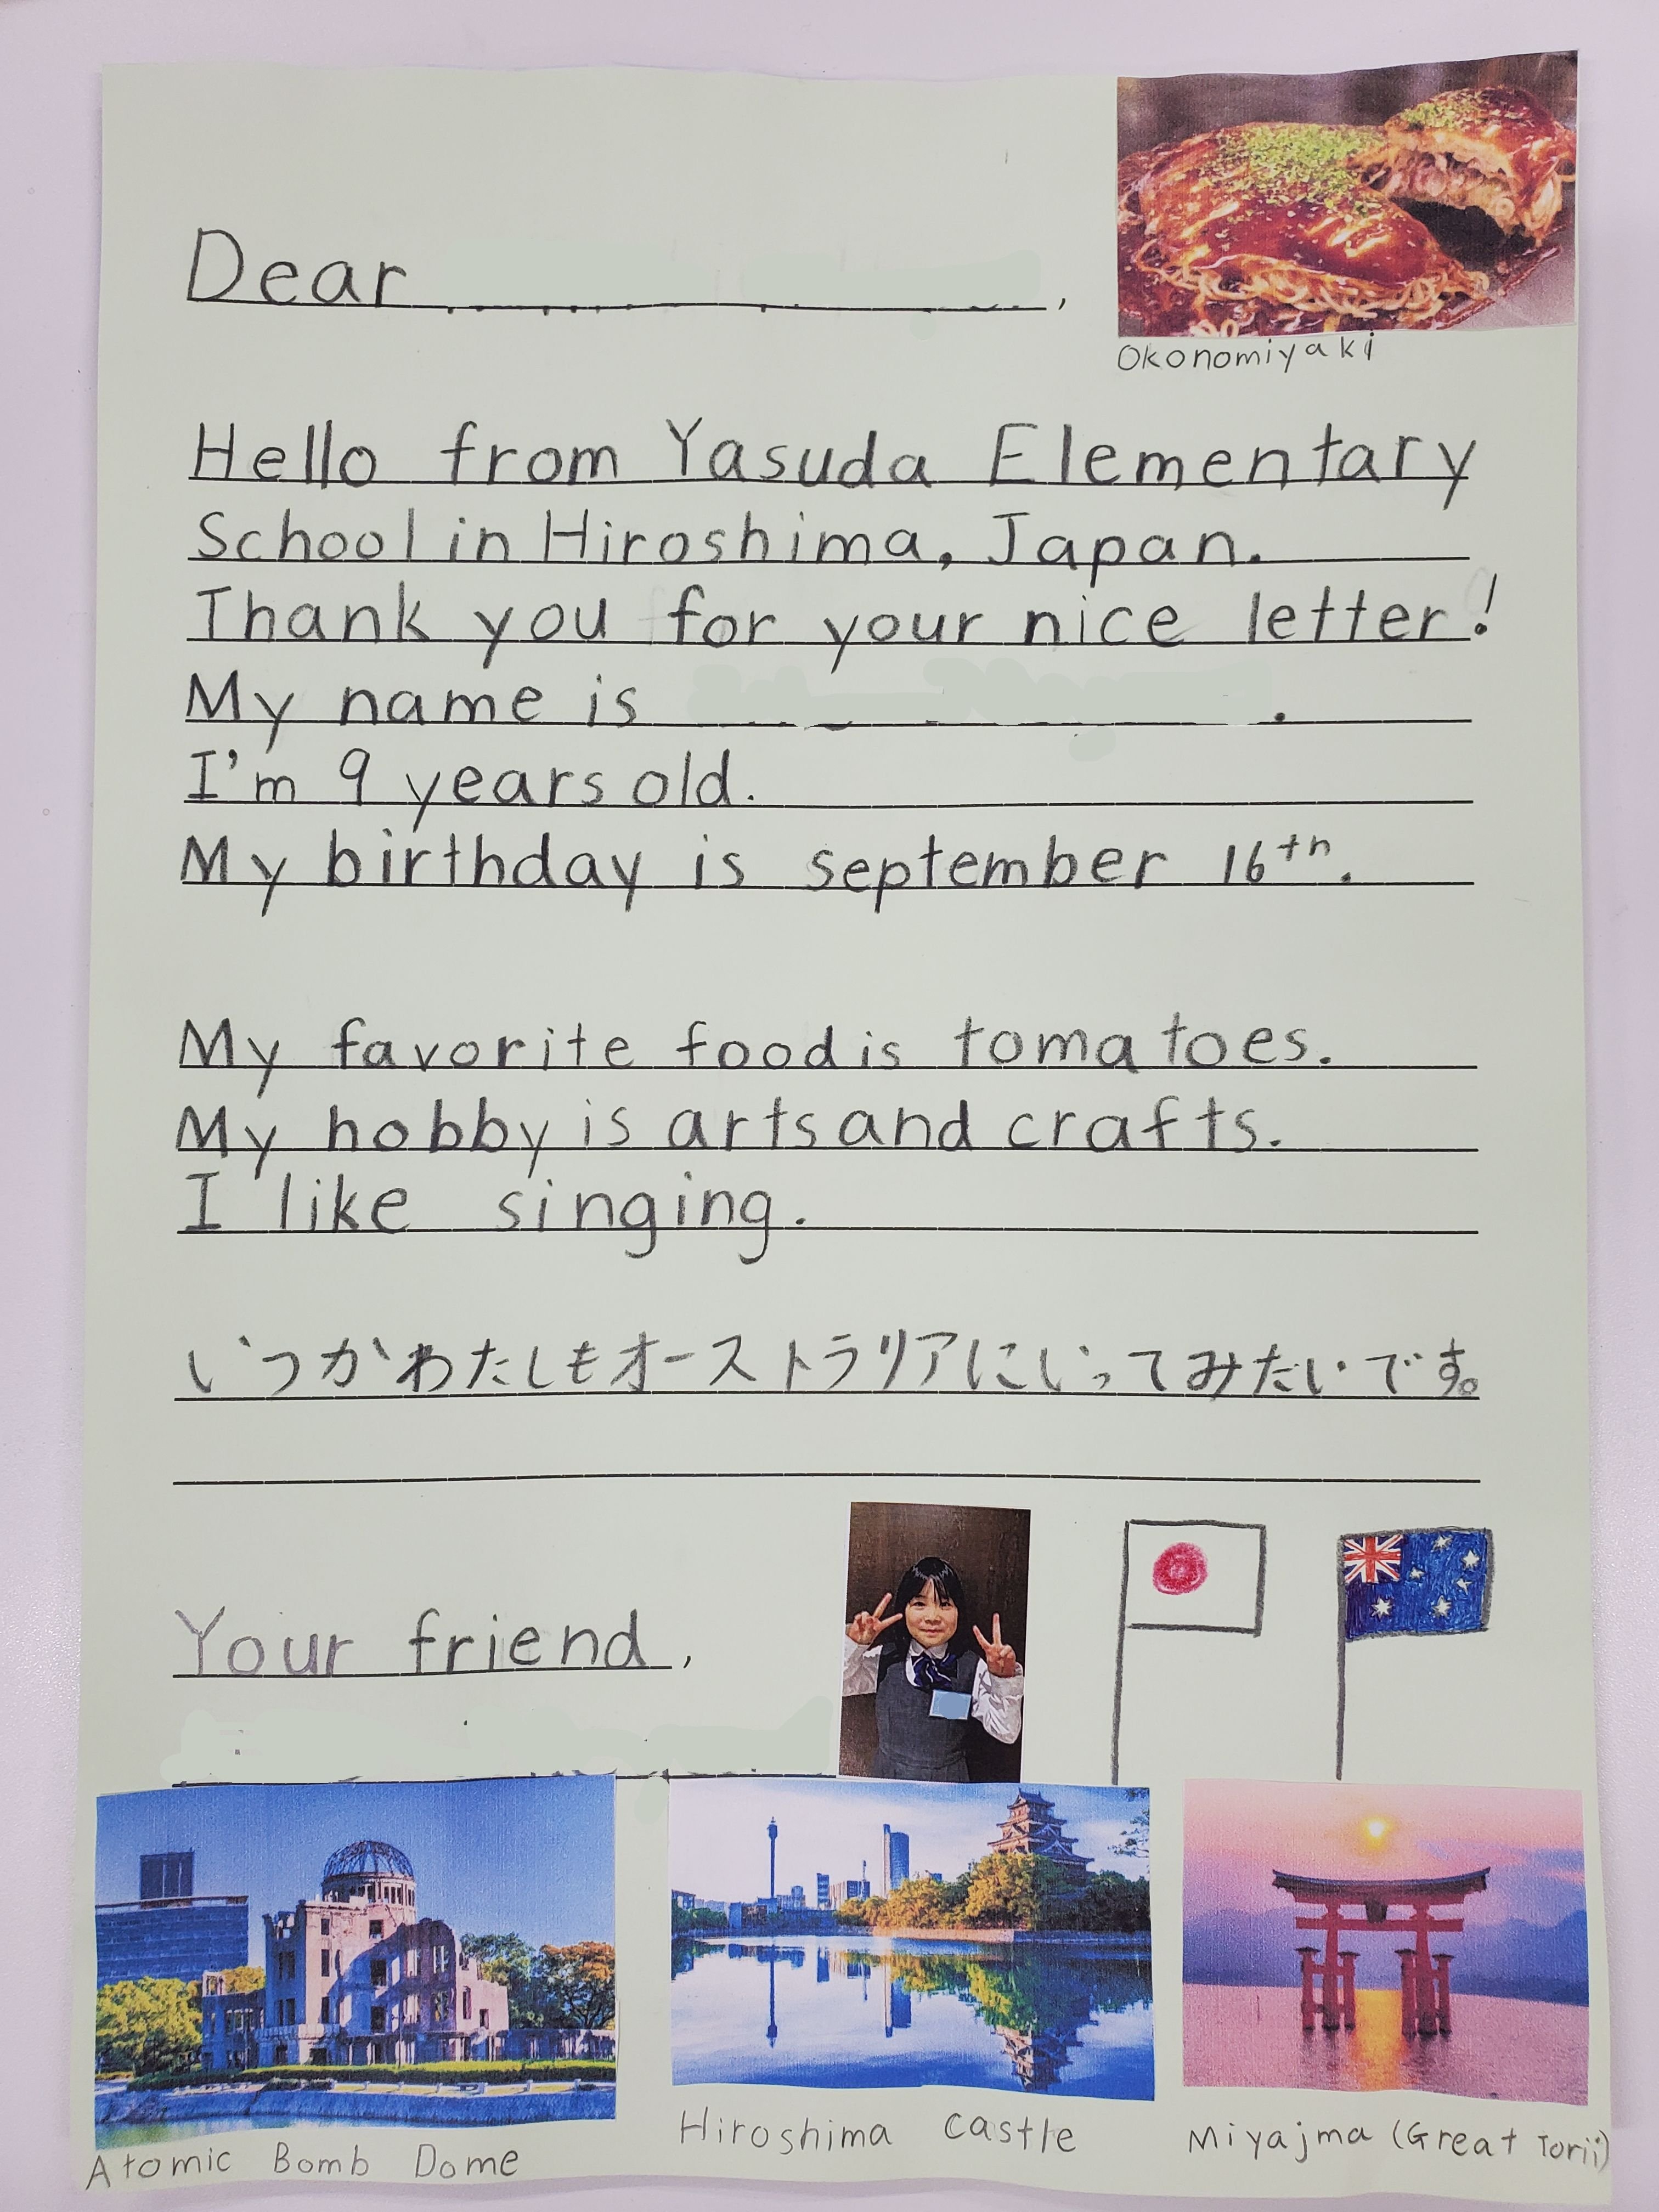 Dear ,
Okonomiyaki
Hello from Yasuda Elementary
School in Hiroshima, Japan.
Thank you for your nice letter!
My name is .
I'm 9 years old.
My birthday is september 16th.
My favorite food is tomatoes.
My hobby is arts and crafts.
I like singing.
いつかわたしもオーストラリアにいってみたいです。
Your friend,
Atomic Bomb Dome
Hiroshima castle
Miyajma (Great Torii)